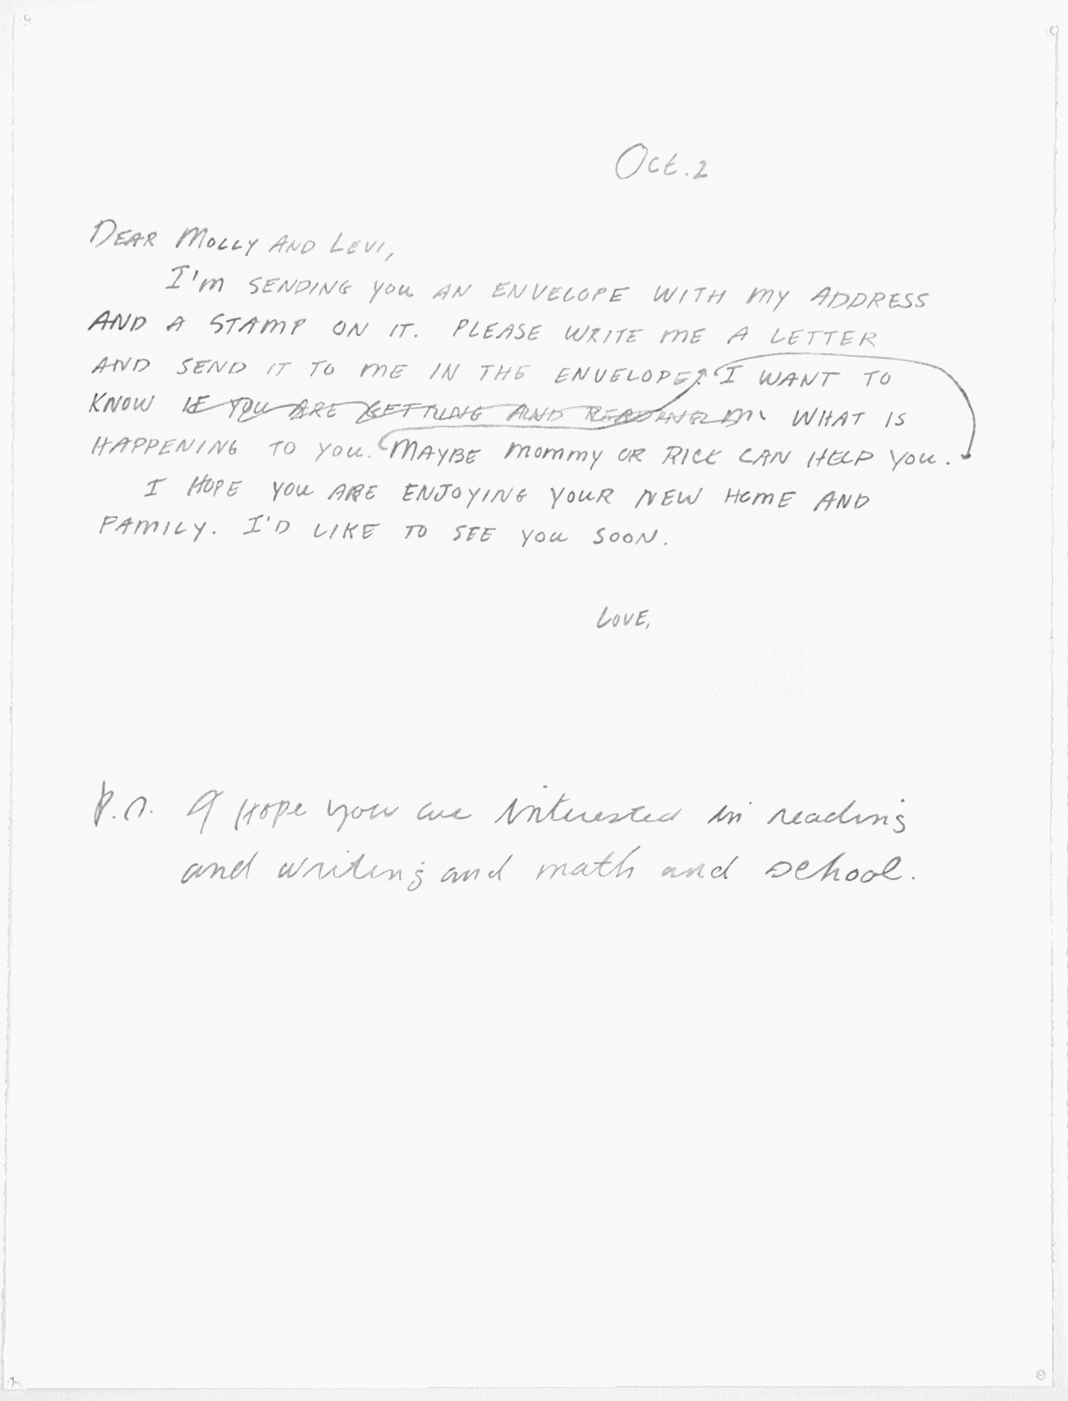 Oct. 2
DEAR MOLLY AND LEVI,
I'm SENDING YOU AN ENVELOPE WITH MY ADDRESS
AND A STAMP ON IT. PLEASE WRITE ME A LETTER
AND SEND IT TO ME IN THE ENVELOPE. I WANT TO
KNOW IF YOU ARE GETTING AND READING MY WHAT IS
HAPPENING TO YOU. MAYBE MOMMY OR RICK CAN HELP YOU.
I HOPE YOU ARE ENJOYING YOUR NEW HOME AND
FAMILY. I'D LIKE TO SEE YOU SOON.
LOVE,
P.S. I Hope you are interested in reading
and writing and math and school.